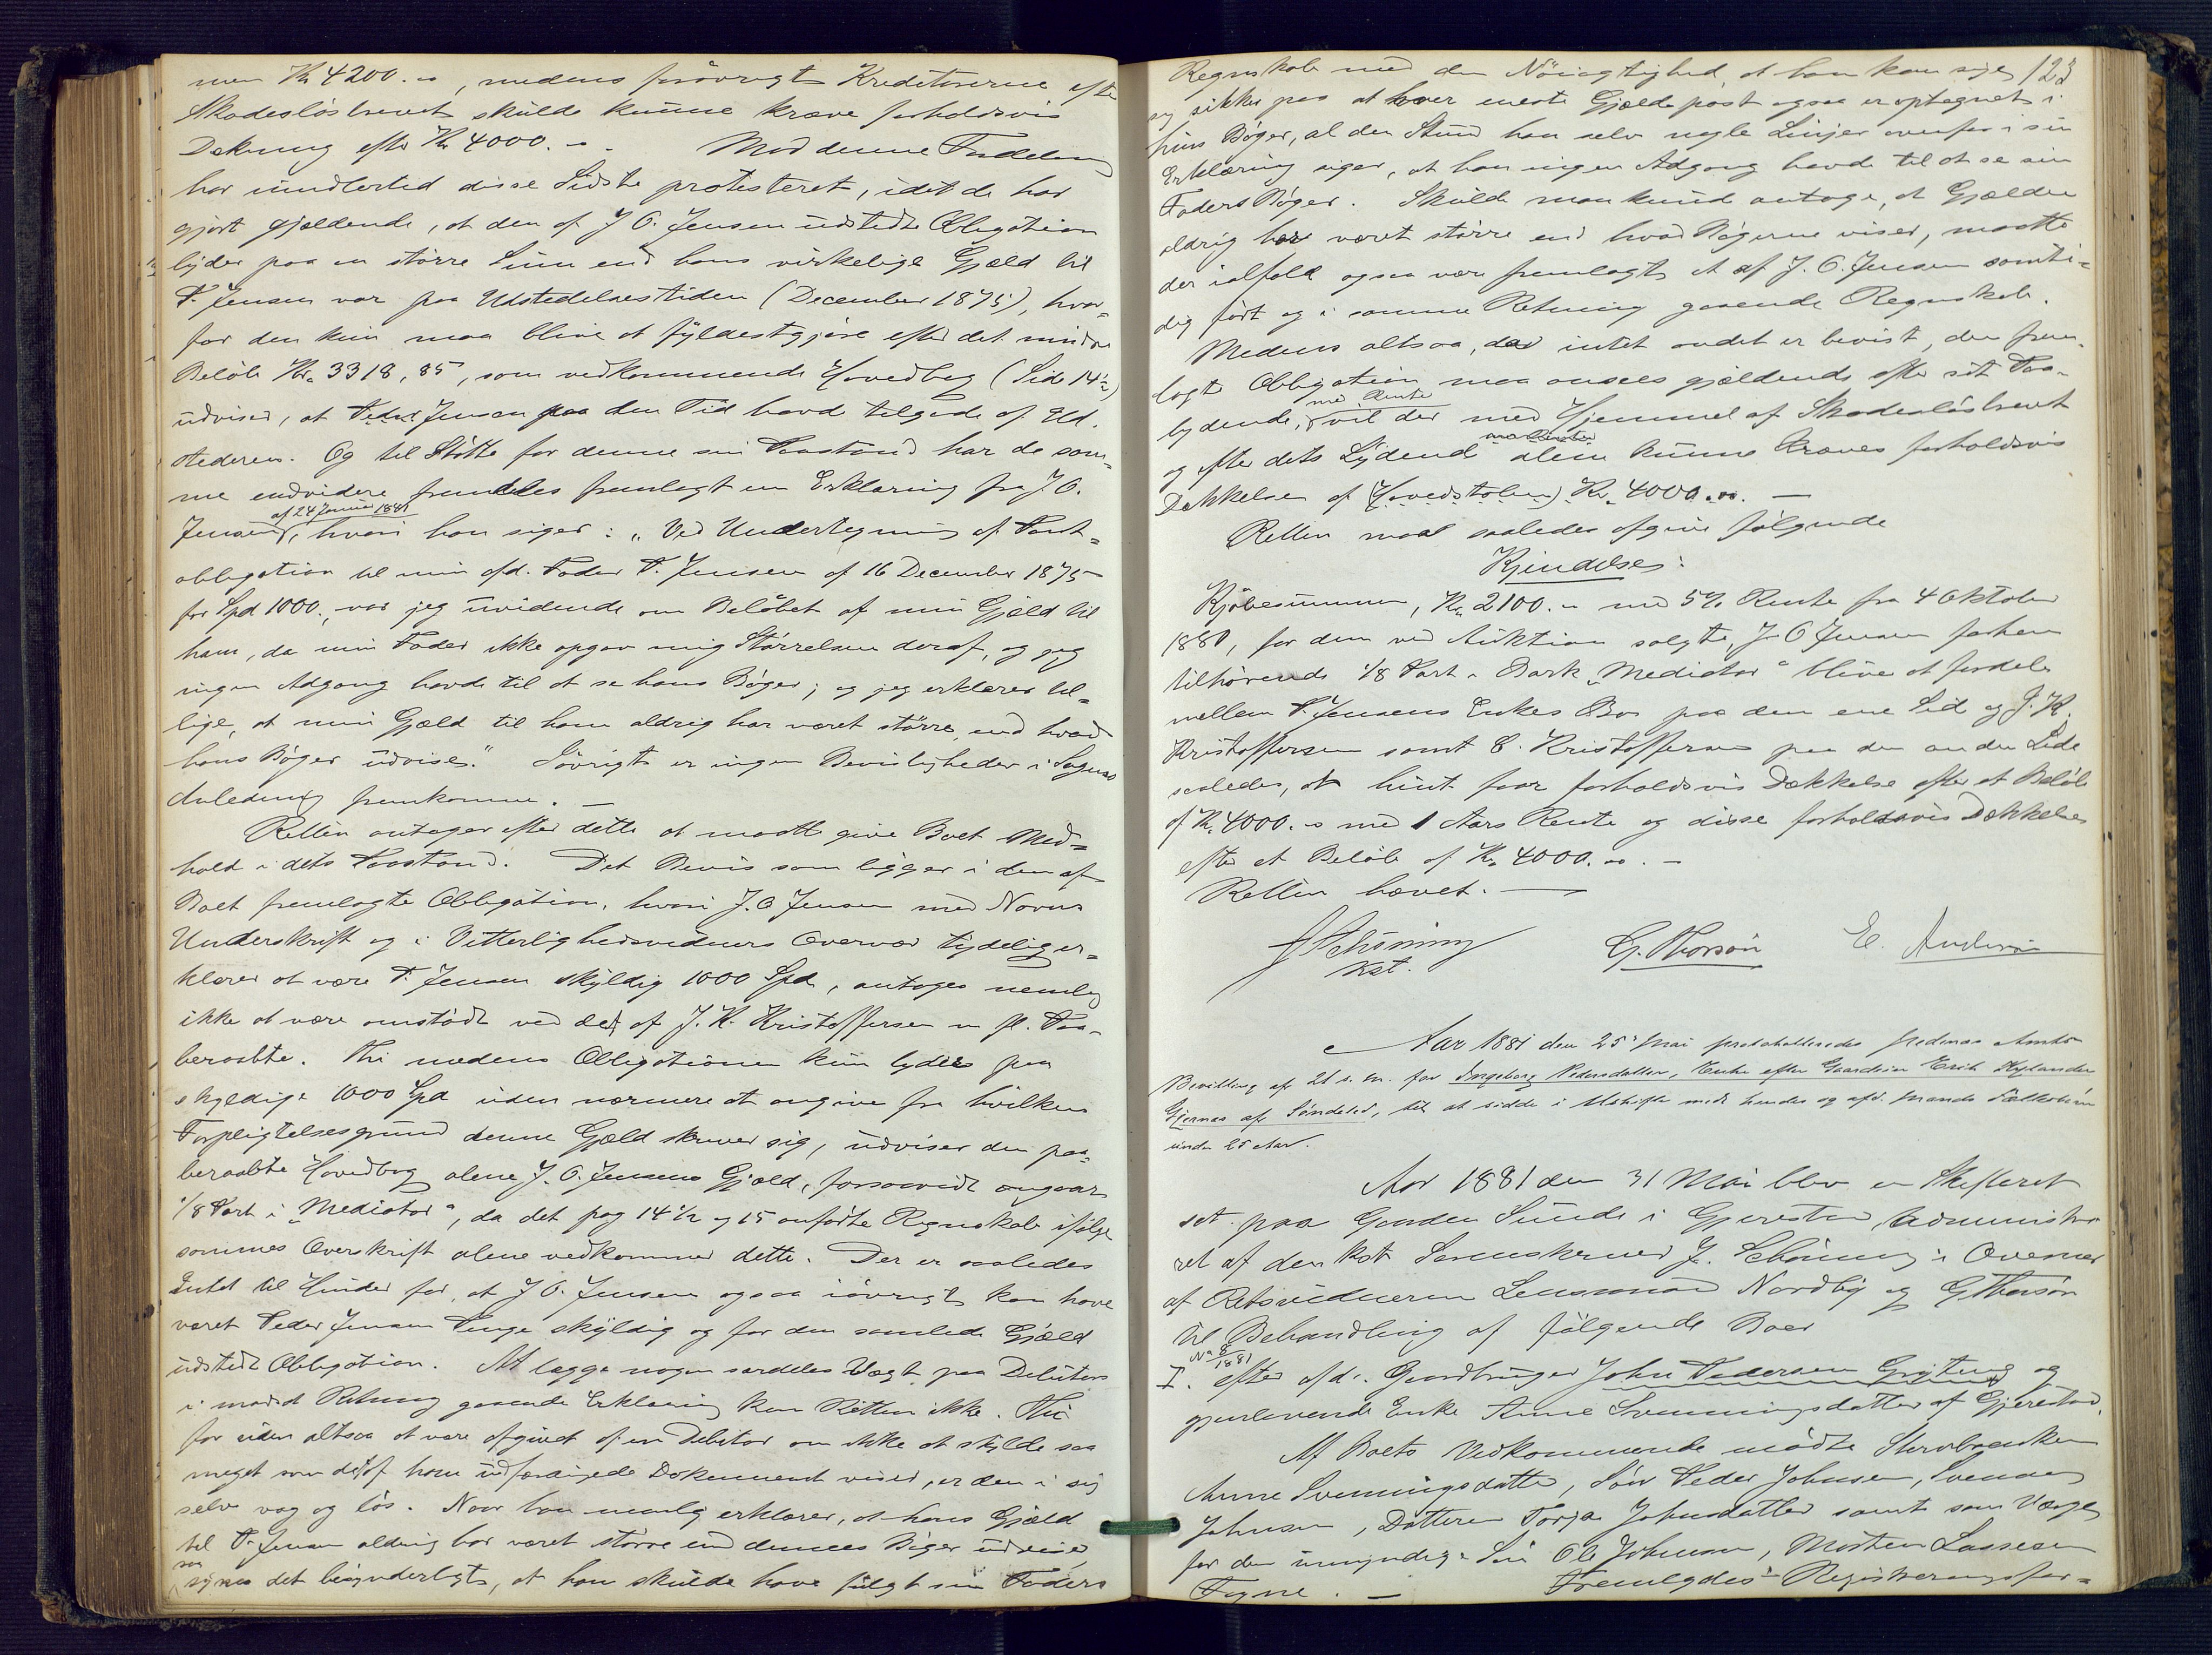 men Kr 4200.00, medens forøvrigt Kreditorerne efter
Skadesløsbrevet skulde kunne kræve forholdsvis
Dækning efter Kr 4000.00. Mod denne Fordeling
har imidlertid disse Sidste protesteret, idet de har
gjort gjældende, at den af J. O. Jensen udstedte Obligation
lyder paa en større Sum end hans virkelige Gjæld til
P. Jensen var paa Udstedelsestiden (December 1875), hvor-
for den kun maa blive at fyldestgjøre efter det mindre
Beløb Kr. 3318,85, som vedkommende Hovedbog (Side 14½)
udviser, at Peder Jensen paa den Tid havde tilgode af Ud-
stederen. Og til Støtte for denne sin Paastand har de sam-
me endvidere fremlagt en Erklæring fra J. O.
Jensen, af 24 Januar 1881 hvori han siger: „Ved Undertegning af Pant-
obligation til min afd. Fader P. Jensen af 16 December 1875
for Spd 1000., var jeg uvidende om Beløbet af min Gjæld til
ham, da min Fader ikke opgav mig Størrelsen deraf, og jeg
ingen Adgang havde til at se hans Bøger; og jeg erklærer til-
lige, at min Gjæld til ham aldrig har været større, end hvad
hans Bøger udviser." Iøvrigt er ingen Bevisligheder i Sagens
Anledning fremkomne. —
Retten antager efter dette at maatte give Boet Med-
hold i dets Paastand. Det Bevis som ligger i den af
Boet fremlagte Obligation, hvori J. O. Jensen med Navns
Underskrift og i Vitterlighedsvidners Overvær tydelig er-
klærer at være P. Jensen skyldig 1000 Spd, antages nemlig
ikke at være omstødt ved det af J. K. Kristoffersen m fl. Paa-
beraabte. Thi medens Obligationen kun lyder paa
skyldige 1000 Spd uden nærmere at angive fra hvilken
Forpligtelsesgrund denne Gjæld skriver sig, udviser den paa-
beraabte Hovedbog alene J. O. Jensens Gjæld, forsaavidt angaar
1/8 Part i „Mediator", da det pag 14½ og 15 anførte Regnskab ifølge
sammes Overskrift alene vedkommer dette. Der er saaledes
Intet til Hinder for, at J. O. Jensen ogsaa iøvrigt kan have
været Peder Jensen Penge skyldig og for den samlede Gjæld
udstedt Obligation. At lægge nogen særdeles Vægt paa Debitors
i modsat Retning gaaende Erklæring kan Retten ikke. Thi
for uden altsaa at være afgivet af en Debitor om ikke at skylde saa
meget som det af ham udfærdigede Dokument viser, er den i sig
selv vag og løs. Naar han nemlig erklærer, at hans Gjæld
til P. Jensen aldrig har været større end dennes Bøger udviser,
saa synes det besynderligt, at han skulde have fulgt sin Faders
Regnskab med den Nøiagtighed, at han kan sige 123
sig sikker paa at hver eneste Gjældspost ogsaa er optegnet i
hins Bøger, al den Stund han selv nogle Linjer ovenfor i sin
Erklæring siger, at han ingen Adgang havde til at se sin
Faders Bøger. Skulde man kunde antage, at Gjælden
aldrig har været større end hvad Bøgerne viser, maatte
der ialfald ogsaa være fremlagt et af J. O. Jensen samti-
dig ført og i samme Retning gaaende Regnskab.
Medens altsaa, da intet andet er bevist, den frem-
lagte Obligation maa ansees gjældende efter sit Paa-
lydende, med Rente vil der med Hjemmel af Skadesløsbrevet
og efter dets Lydende alene kunne kræves forholdsvis
Dækkelse af (Hovedstolen) Kr. 4000.00. —
Retten maa saaledes afgive følgende
Kjendelse:
Kjøbesummen, Kr. 2100.00 med 5% Rente fra 4 Oktober
1880, for den ved Auktion solgte, J. O. Jensen forhen
tilhørende 1/8 Part i Bark „Mediator" blive at fordele
mellem P. Jensens Enkes Bo paa den ene Side og J. K.
Kristoffersen samt C. Kristoffersen paa den anden Side
saaledes, at hint faar forholdsvis Dækkelse efter et Beløb
af Kr. 4000.00 med 1 Aars Rente og disse forholdsvis Dækkelse
efter et Beløb af Kr. 4000.00. —
Retten hævet. —
J Schiøning G. Thorsen E. Andersen
Kst.
Aar 1881 den 25' Mai protokolleredes Nedenæs Amts
Bevilling af 21 s. m. for Ingeborg Pedersdatter, Enke efter Gaardeier Erik
Gjernæs af Søndeled, til at sidde i Uskifte med hendes og afd. Mands Fællesbørn
under 25 Aar.
Aar 1881 den 31 Mai blev en Skifteret
sat paa Gaarden Sunde i Gjerestad, administre-
ret af den kst. Sorenskriver J. Schiøning i Overvær
af Retsvidnerne Lensmand Nordby og G Thorsen
til Behandling af følgende Boer
No 8/1881
I. efter afd. Gaardbruger John Pedersen Grytting og
gjenlevende Enke Anne Svenningsdatter af Gjerestad.
Af Boets Vedkommende mødte Stervboenken
Anne Svenningsdatter, Søn Peder Johnsen, Svenning
Johnsen, Datteren Torja Johnsdatter samt som Værge
for den umyndige Søn Ole Johnsen, Morten Lassesen
Fogne. — Fremlagdes Registreringsfor-